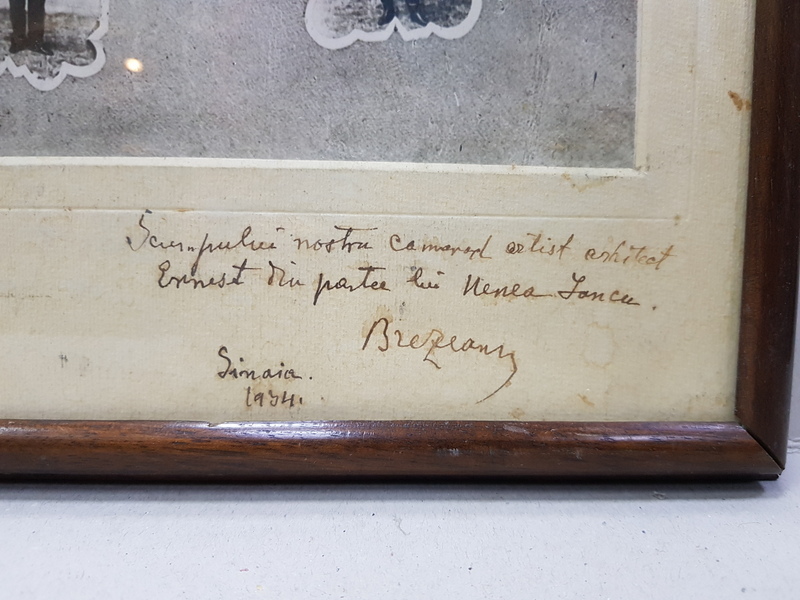 Scumpului nostru camarad artist arhitect
Ernest din partea lui Nenea Iancu.
Brezeanu
Sinaia.
1934.